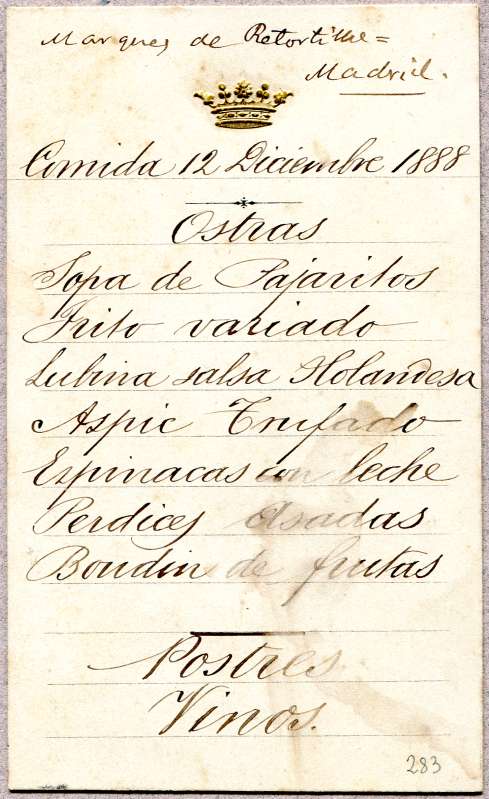 Marques de Retortillo=
Madrid.
Comida 12 Diciembre 1888
Ostras
Sopa de Pajaritos
Frito variado
Lubina salsa Holandesa
Aspic Trufado
Espinacas con leche
Perdices Asadas
Boudin de frutas
Postres
Vinos.
283